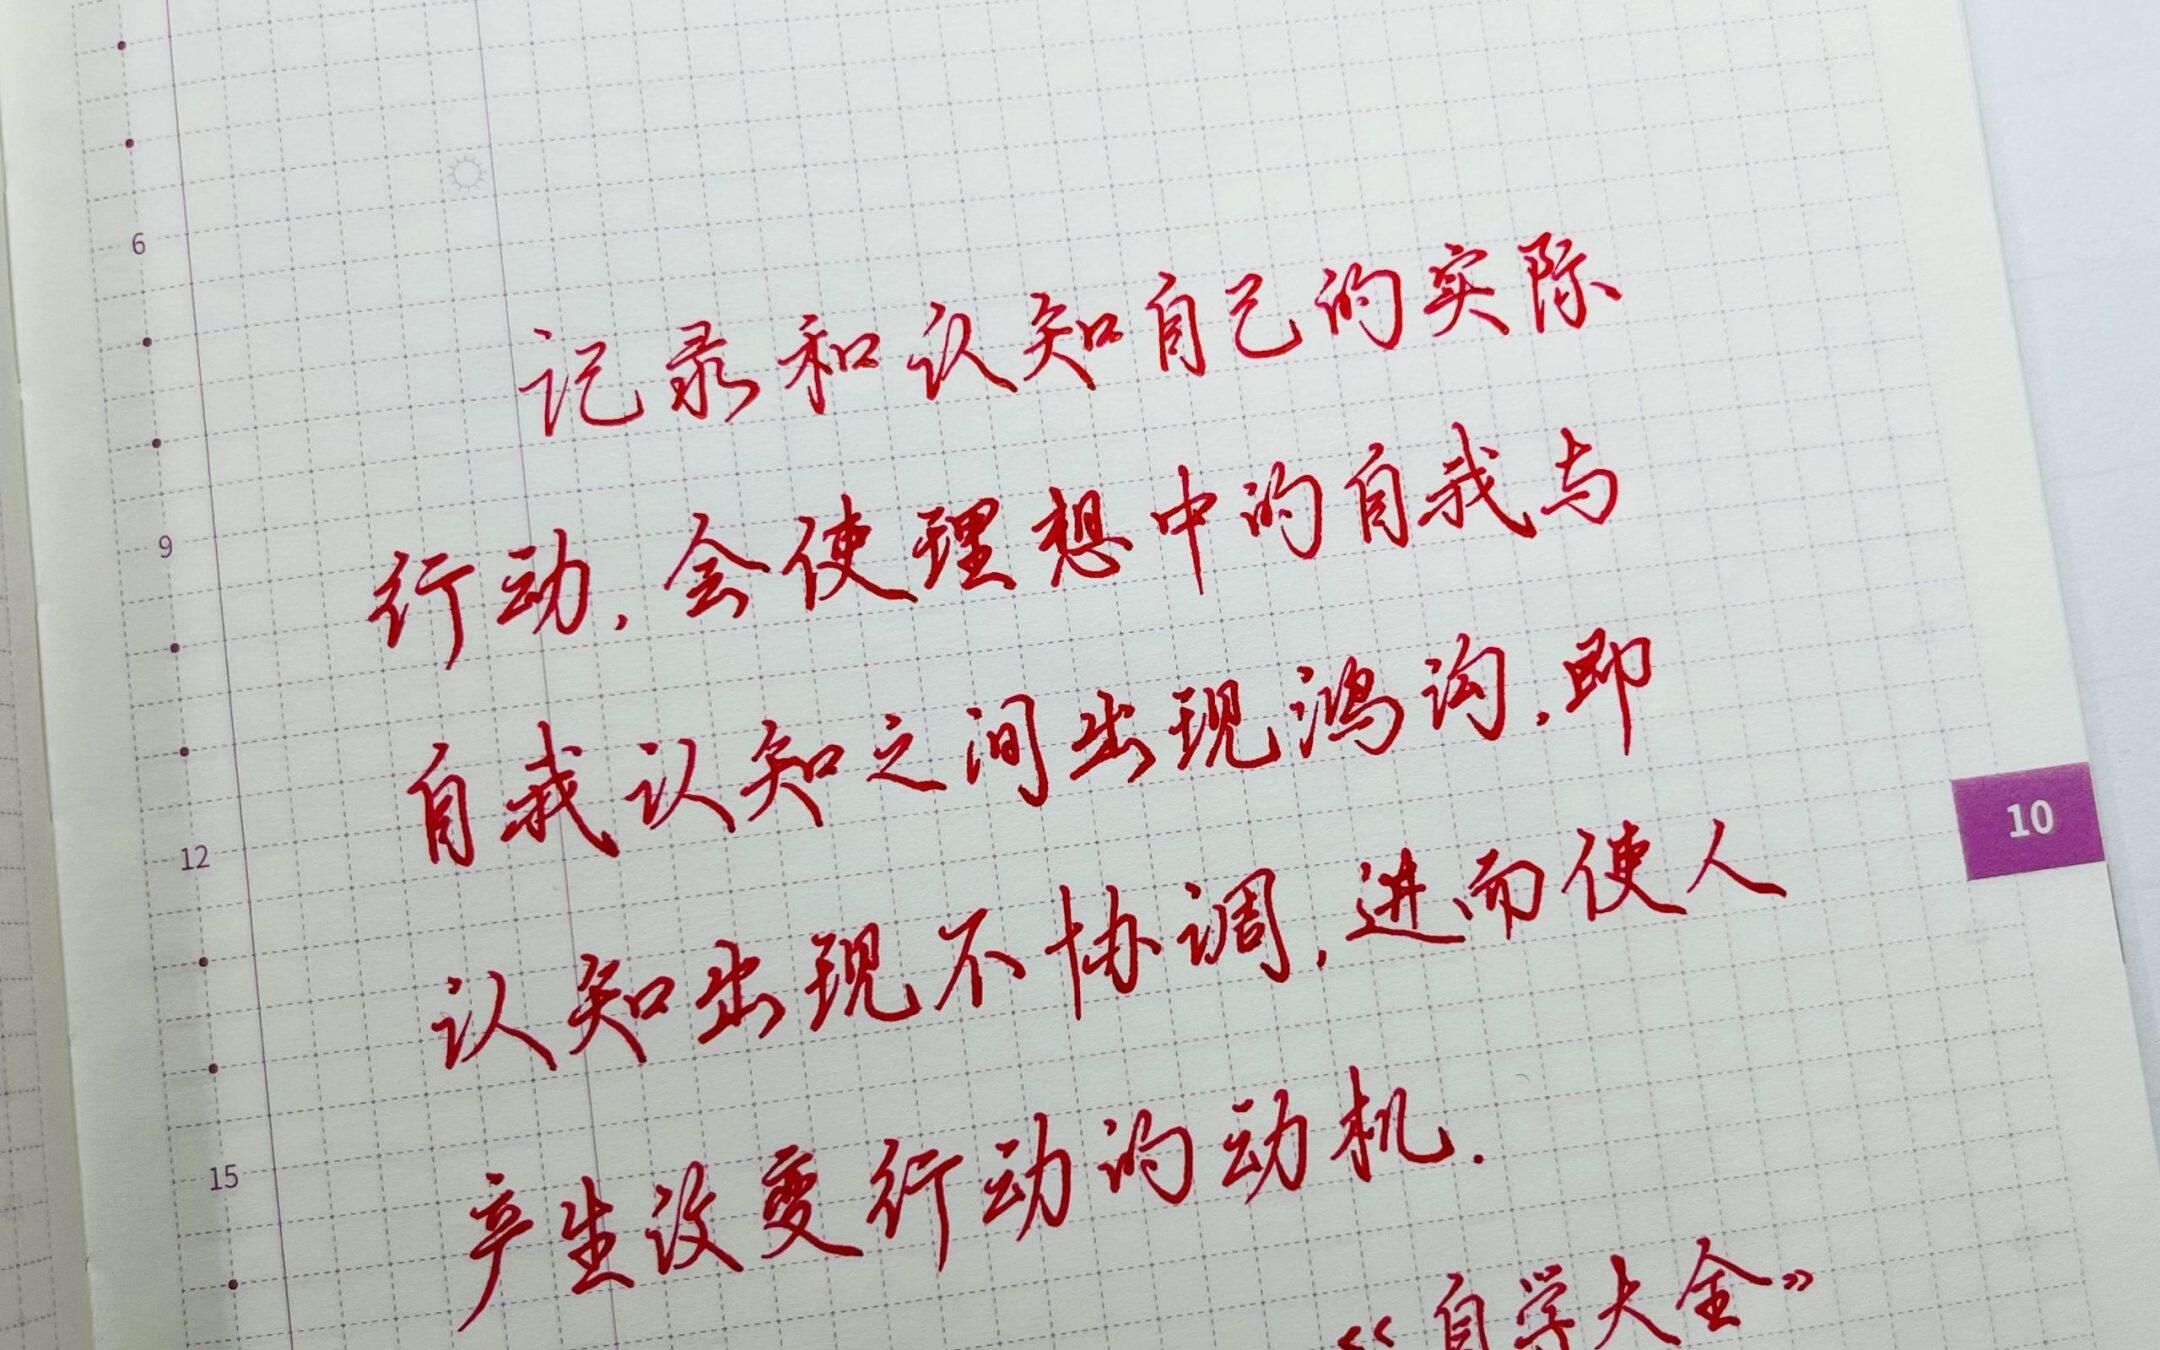 记录和认知自己的实际
行动,会使理想中的自我与
自我认知之间出现鸿沟,即
认知出现不协调,进而使人
产生改变行动的动机.
《自学大全》
6
9
12
15
10